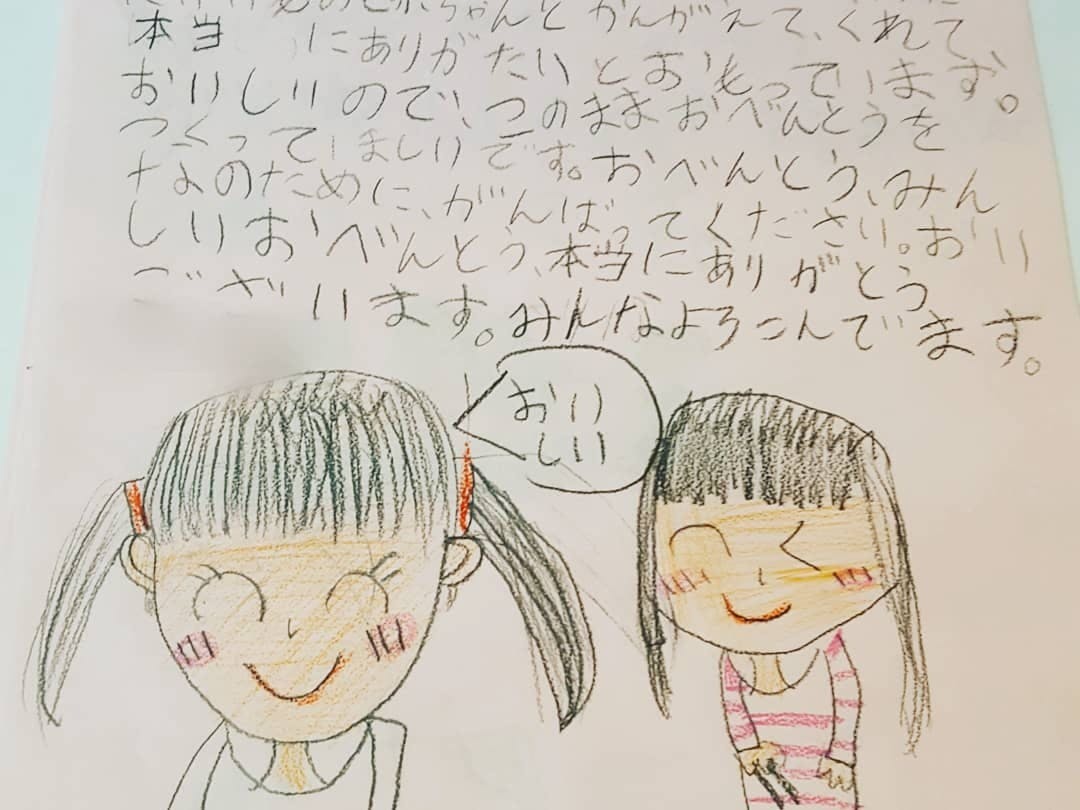 ちゃんとかんがえて、くれて
本当 にありがたいとおもっています。
おいしいので、このままおべんとうを
つくってほしいです。おべんとう、みん
なのために、がんばってください。おい
しいおべんとう、本当にありがとう
ございます。みんなよろこんでます。
おい
しい